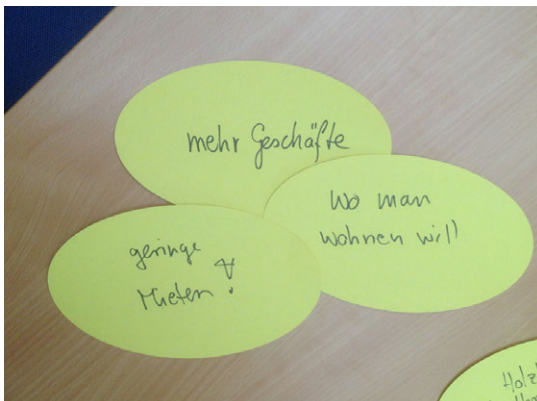 mehr Geschäfte
Wo man
wohnen will
geringe
Mieten!